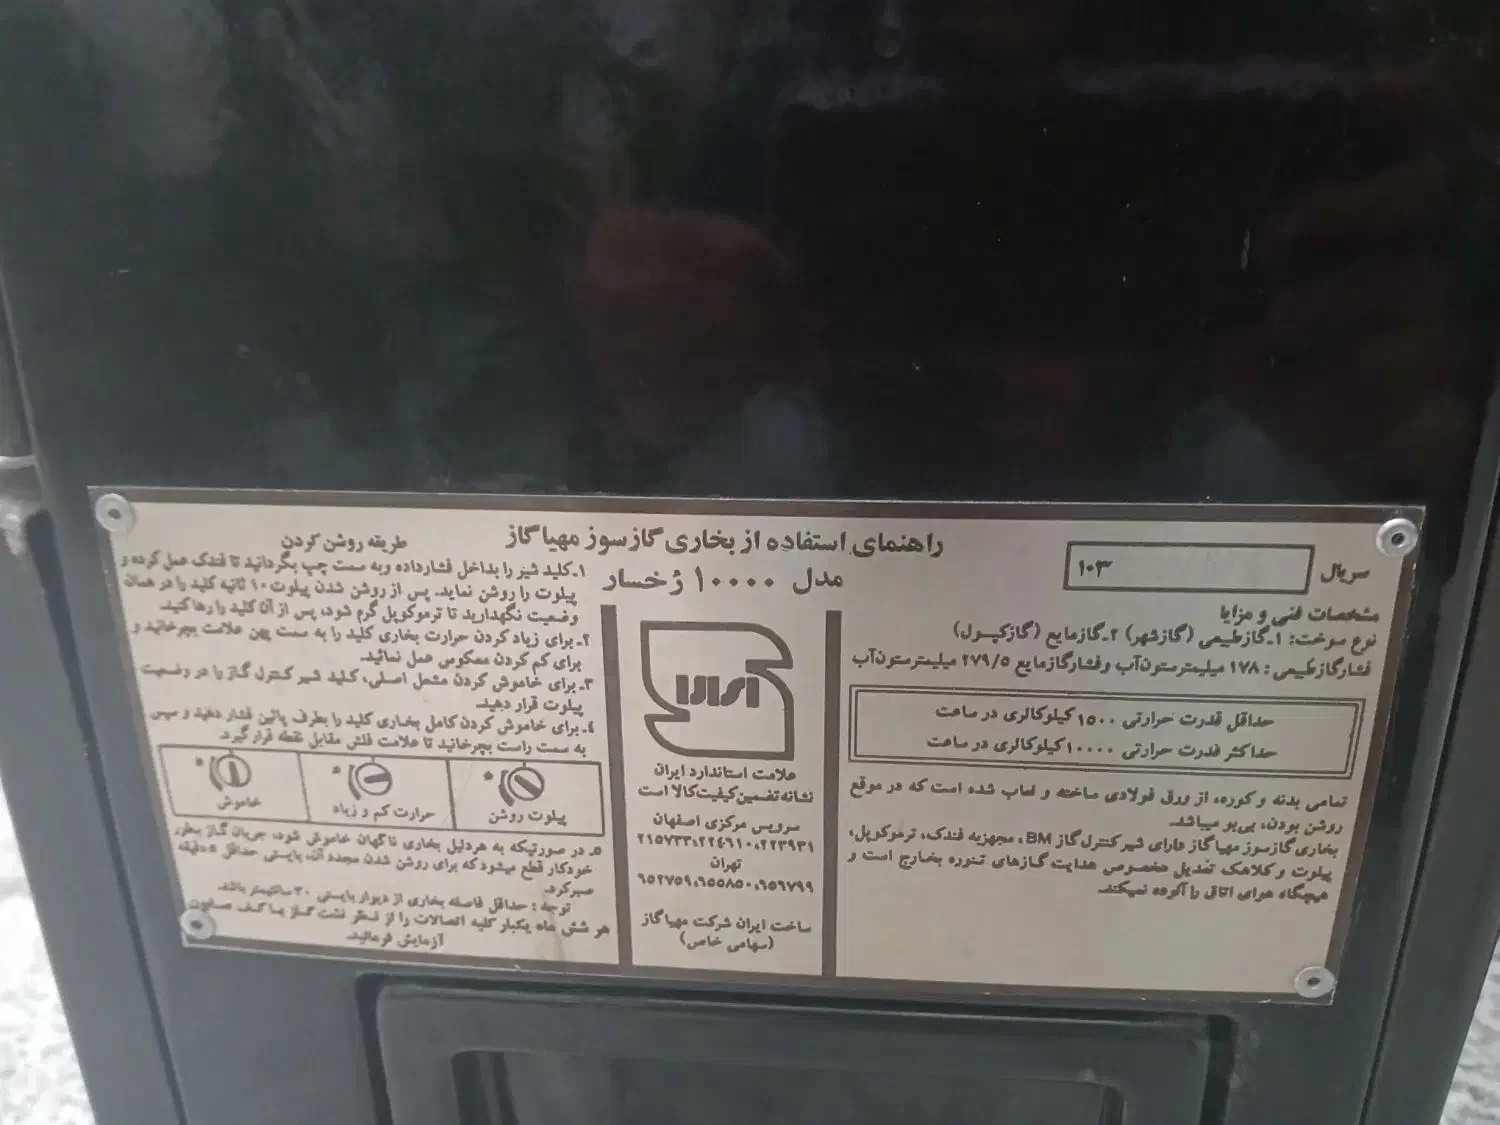 راهنمای استفاده از بخاری گازسوز مهیاگاز
مدل ۱۰۰۰۰ ژخسار
سریال ۱۰۳
مشخصات فنی و مزایا
نوع سوخت: ۱ـ گازطبیعی (گازشهر) ۲ـ گازمایع (گازکپسول)
فشارگازطبیعی: ۱۷۸ میلیمترستون‌آب وفشارگازمایع ۲۷۹/۵ میلیمترستون‌آب
حداقل قدرت حرارتی ۱۵۰۰ کیلوکالری در ساعت
حداکثر قدرت حرارتی ۱۰۰۰۰ کیلوکالری در ساعت
تمامی بدنه و کوره، از ورق فولادی ساخته و لعاب شده است که در موقع
روشن بودن، بی‌بو میباشد.
بخاری گازسوز مهیاگاز دارای شیرکنترل گاز BM، مجهزبه فندک، ترموکوپل،
پیلوت و کلاهک تعدیل مخصوص هدایت گازهای تنوره بخارج است و
هیچگاه هوای اتاق را آلوده نمیکند.
ایران
علامت استاندارد ایران
نشانه تضمین کیفیت کالا است
سرویس مرکزی اصفهان
۲۲۳۹۳۱، ۲۲۴۶۱۰، ۲۱۵۷۳۳
تهران
۶۵۶۷۹۹، ۶۵۵۸۵۰، ۶۵۲۷۵۹
ساخت ایران شرکت مهیاگاز
(سهامی خاص)
طریقه روشن کردن
۱ـ کلید شیر را بداخل فشارداده وبه سمت چپ بگردانید تا فندک عمل کرده و
پیلوت را روشن نماید. پس از روشن شدن پیلوت ۱۰ ثانیه کلید را در همان
وضعیت نگهدارید تا ترموکوپل گرم شود، پس از آن کلید را رها کنید.
۲ـ برای زیاد کردن حرارت بخاری کلید را به سمت پهن علامت بچرخانید و
برای کم کردن معکوس عمل نمائید.
۳ـ برای خاموش کردن مشعل اصلی، کلید شیر کنترل گاز را در وضعیت
پیلوت قرار دهید.
۴ـ برای خاموش کردن کامل بخاری کلید را بطرف پائین فشار دهید و سپس
به سمت راست بچرخانید تا علامت فلش مقابل نقطه قرار گیرد.
پیلوت روشن
حرارت کم و زیاد
خاموش
۵ـ در صورتیکه به هردلیل بخاری ناگهان خاموش شود، جریان گاز بطور
خودکار قطع میشود که برای روشن شدن مجدد آن، بایستی حداقل ۵ دقیقه
صبرکرد.
توجه: حداقل فاصله بخاری از دیوار بایستی ۳۰ سانتیمتر باشد.
هر شش ماه یکبار کلیه اتصالات را از نظر نشت گاز با کف صابون
آزمایش فرمائید.